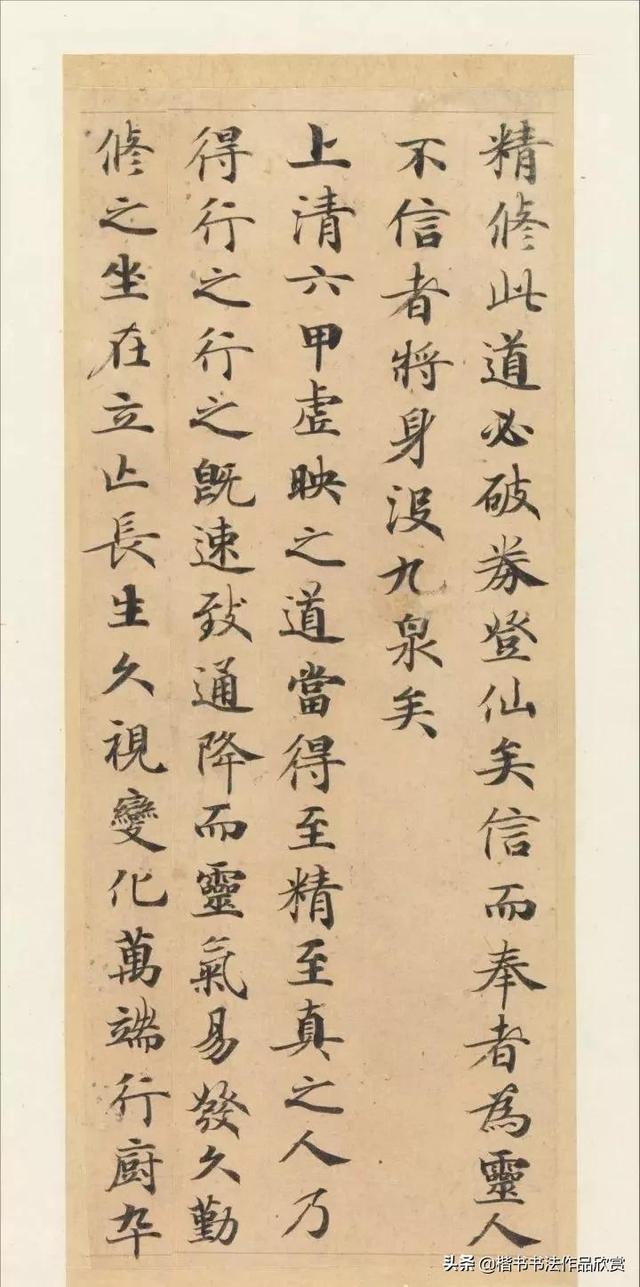 精修此道必破券登仙矣信而奉者為靈人
不信者將身没九泉矣
上清六甲虚映之道當得至精至真之人乃
得行之行之既速致通降而靈氣易發久勤
修之坐在立亡長生久視變化萬端行厨卒
头条 @楷书书法作品欣赏